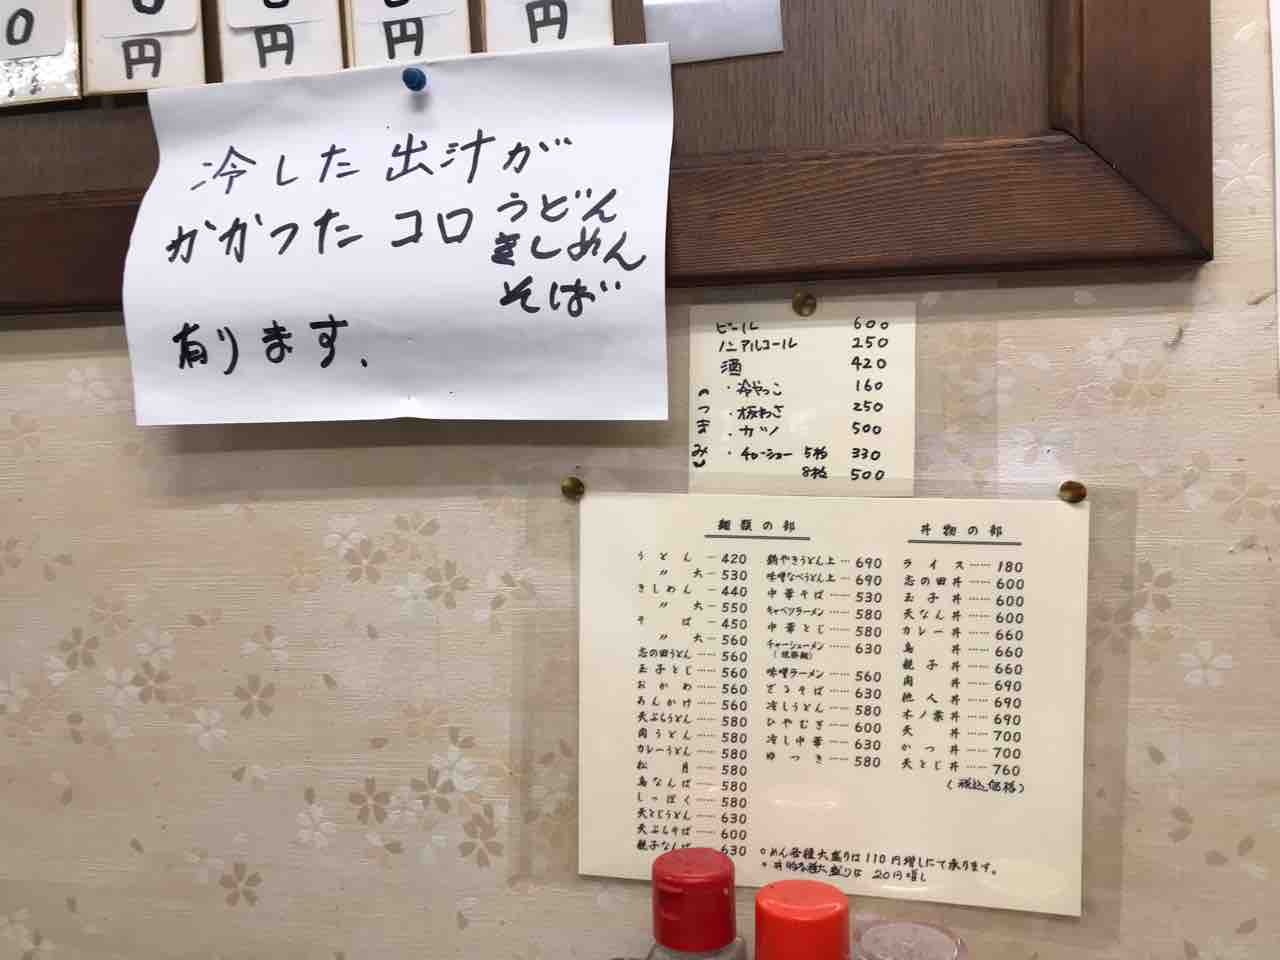 0
円
円
円
円
冷した出汁が
かかったコロ うどん
きしめん
そば
有ります、
ビール 600
ノンアルコール 250
酒 420
おつまみ
・冷やっこ 160
・板わさ 250
・カツ 500
・チャーシュー 5枚 330
8枚 500
麺類の部
うどん … 420
〃 大 … 530
きしめん … 440
〃 大 … 550
そば … 450
〃 大 … 560
志の田うどん … 560
玉子とじ … 560
おかめ … 560
あんかけ … 560
天ぷらうどん … 580
肉うどん … 580
カレーうどん … 580
松月 … 580
鳥なんば … 580
しっぽく … 580
天とじうどん … 630
天ぷらそば … 600
親子なんば 630
鍋やきうどん上 … 690
味噌なべうどん上 … 690
中華そば …… 530
キャベツラーメン …… 580
中華とじ …… 580
チャーシューメン …… 630
味噌ラーメン …… 560
ざるそば …… 630
冷しうどん …… 580
ひやむぎ …… 600
冷し中華 …… 630
ゆつき …… 580
丼物の部
ライス …… 180
志の田丼 …… 600
玉子丼 …… 600
天なん丼 …… 600
カレー丼 …… 660
鳥丼 …… 660
親子丼 …… 660
肉丼 …… 690
他人丼 …… 690
木ノ葉丼 …… 690
天丼 …… 700
かつ丼 …… 700
天とじ丼 …… 760
(税込価格)
○めん各種大盛りは110円増しにて承ります。
○丼物各種大盛りは 20円増し